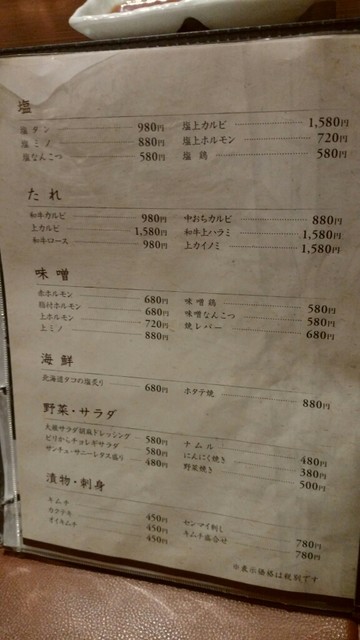 塩
塩タン 980円 塩上カルビ 1,580円
塩ミノ 880円 塩上ホルモン 720円
塩なんこつ 580円 塩 鶏 580円
たれ
和牛カルビ 980円 中おちカルビ 880円
上カルビ 1,580円 和牛上ハラミ 1,580円
和牛ロース 980円 上カイノミ 1,580円
味噌
赤ホルモン 680円 味噌鶏 580円
脂付ホルモン 680円 味噌なんこつ 580円
上ホルモン 720円 焼レバー 680円
上ミノ 880円
海鮮
北海道タコの塩炙り 680円 ホタテ焼 880円
野菜・サラダ
大根サラダ胡麻ドレッシング 580円 ナムル 480円
ピリからチョレギサラダ 580円 にんにく焼き 380円
サンチュ・サニーレタス盛り 480円 野菜焼き 500円
漬物・刺身
キムチ 450円 センマイ刺し 780円
カクテキ 450円 キムチ盛合せ 780円
オイキムチ 450円
※表示価格は税別です